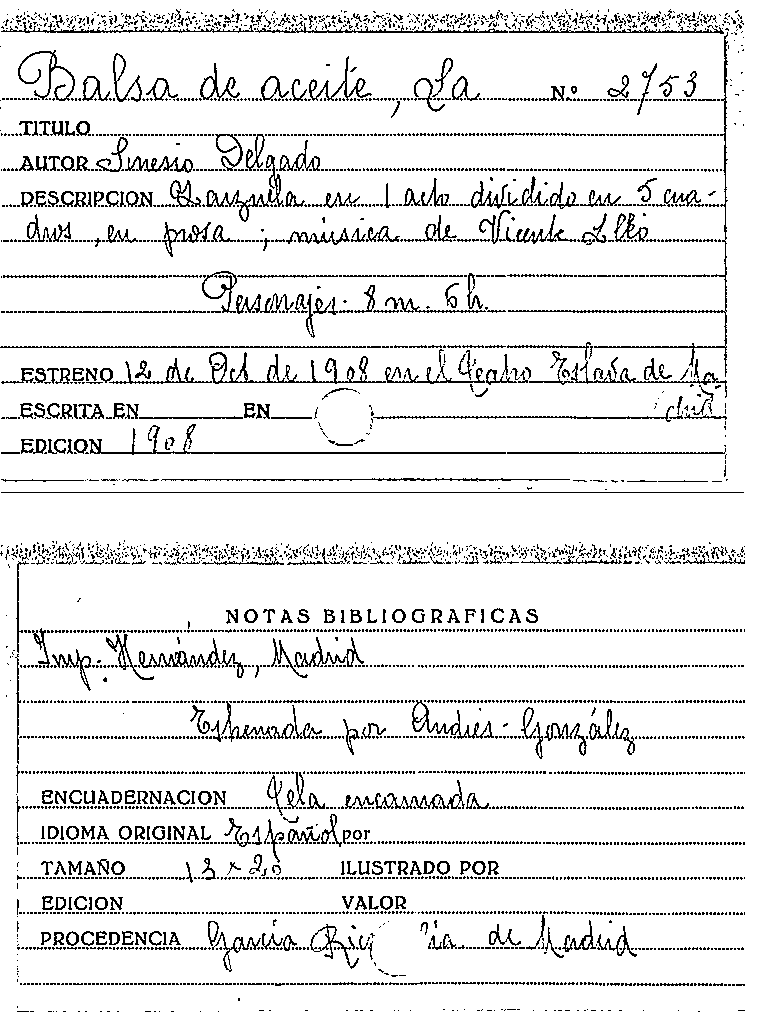 Balsa de aceite, La N.º 2753
TITULO
AUTOR Sinesio Delgado
DESCRIPCION Zarzuela en 1 acto dividido en 5 cua-
dros, en prosa; música de Vicente Lleó
Personajes. 8 m. 6 h.
ESTRENO 12 de Oct de 1908 en el Teatro Eslava de Ma-
drid
ESCRITA EN EN
EDICION 1908
NOTAS BIBLIOGRAFICAS
Imp. Hernández, Madrid
Estrenada por Andrés-González
ENCUADERNACION Tela encarnada
IDIOMA ORIGINAL Español por
TAMAÑO 13 x 20 ILUSTRADO POR
EDICION VALOR
PROCEDENCIA García de Madrid